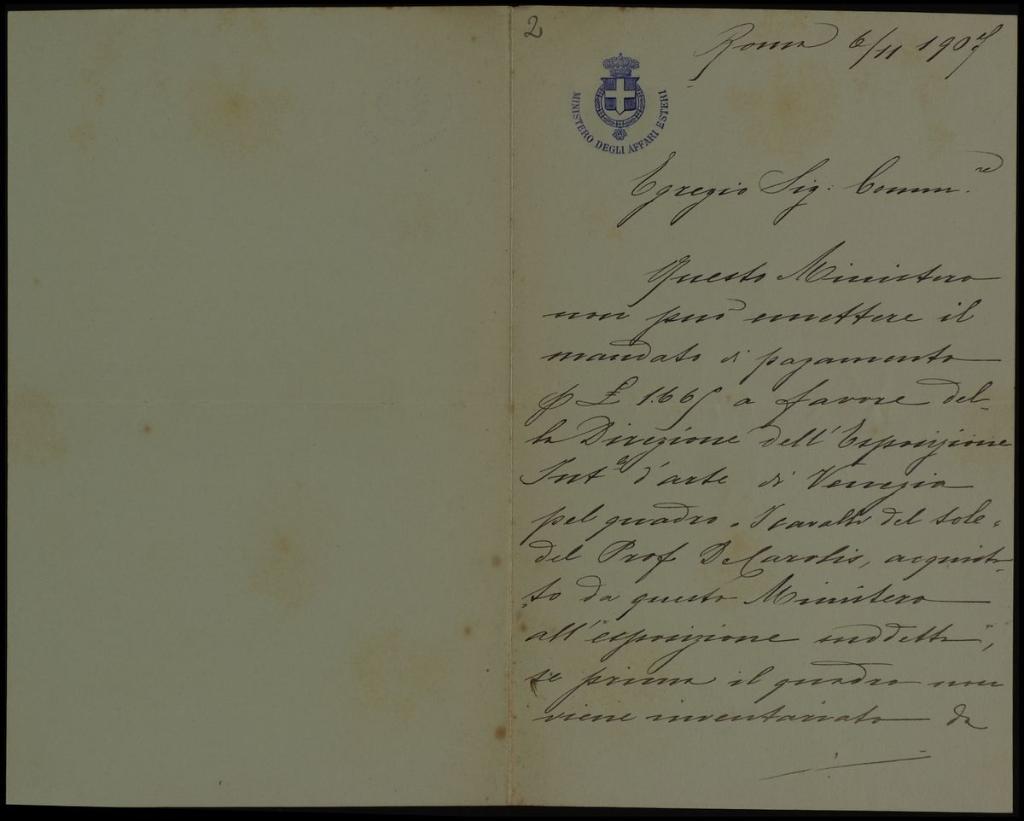 2
Roma 6/11 1907
MINISTERO DEGLI AFFARI ESTERI
Egregio Sig: Comm.re
Questo Ministero
non può emettere il
mandato di pagamento
di £ 1665 a favore del-
la Direzione dell'Esposizione
Int.le d'arte di Venezia
pel quadro "I cavalli del sole"
del Prof De Carolis, acquista-
to da questo Ministero
all'esposizione suddetta,
se prima il quadro non
viene inventariato da